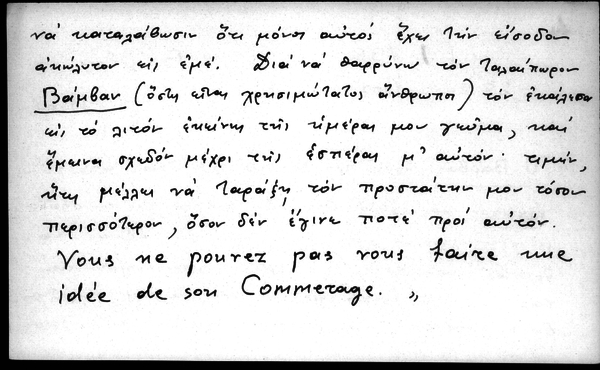 νά καταλάβωσιν ὅτι μόνος αὐτός ἔχει τήν εἴσοδον
ἀκώλυτον εἰς ἐμέ. Διά νά θαρρύνω τόν ταλαίπωρον
Βάμβαν (ὅστις εἶναι χρησιμώτατος ἄνθρωπος) τόν ἐκάλεσα
εἰς τό λιτόν ἐκείνης τῆς ἡμέρας μου γεῦμα, καί
ἔμεινα σχεδόν μέχρι τῆς ἑσπέρας μ' αὐτόν· τιμήν,
ἥτις μέλλει νά ταράξῃ τόν προστάτην μου τόσον
περισσότερον, ὅσον δέν ἔγινε ποτέ πρός αὐτόν.
Vous ne pouvez pas vous faire une
idée de son Commerage. »